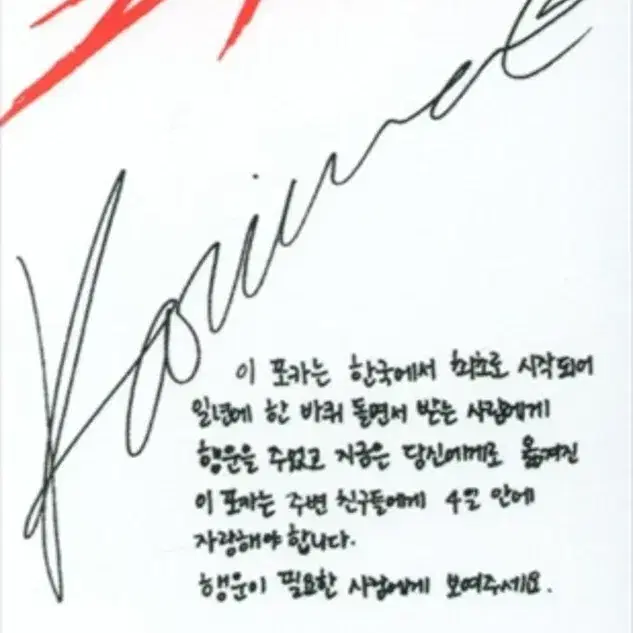 Karina
이 포카는 한국에서 최초로 시작되어
일년에 한 바퀴 돌면서 받는 사람에게
행운을 주었고 지금은 당신에게로 옮겨진
이 포카는 주변 친구들에게 4일 안에
자랑해야 합니다.
행운이 필요한 사람에게 보여주세요.